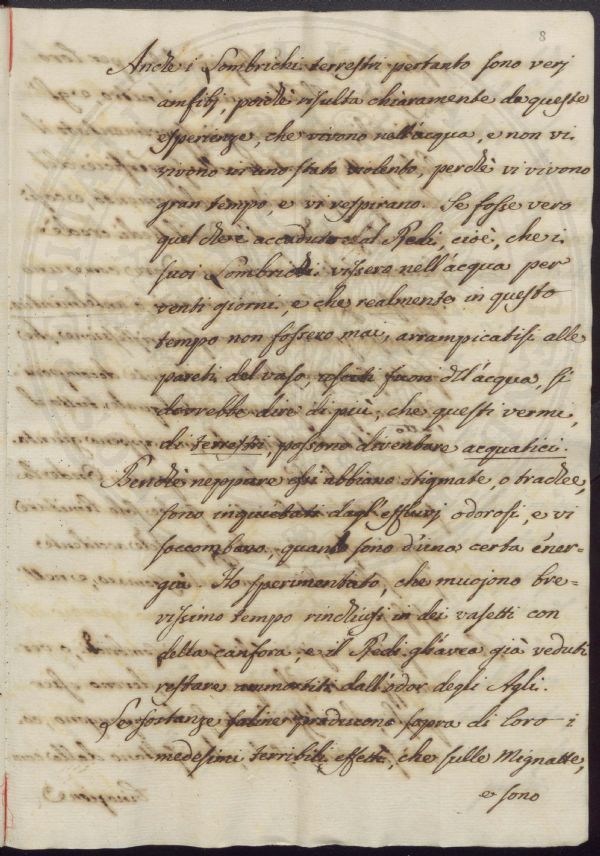 8
Anche i Lombrichi terrestri pertanto sono verj
anfibj, poichè risulta chiaramente da queste
esperienze, che vivono nell'acqua, e non vi
vivono in uno stato violento, perchè vi vivono
gran tempo, e vi respirano. Se fosse vero
quel che è accaduto al Redi, cioè, che i
suoi Lombrichi vissero nell'acqua per
venti giorni, e che realmente in questo
tempo non fossero mai, arrampicatisi alle
pareti del vaso, usciti fuori dell'acqua, si
dovrebbe dire di più, che questi vermi,
di terrestri, possono diventare acquatici.
Benchè neppure essi abbiano stigmate, o trachee,
sono inquietati dagl'effluvj odorosi, e vi
soccombono, quando sono d'una certa ener=
gia. Ho sperimentato, che muojono bre=
vissimo tempo rinchiusi in dei vasetti con
della canfora, e il Redi gl'avea già veduti
restare ammortiti dall'odor degli Agli.
Le sostanze saline producono sopra di loro i
medesimi terribili effetti, che sulle Mignatte,
e sono